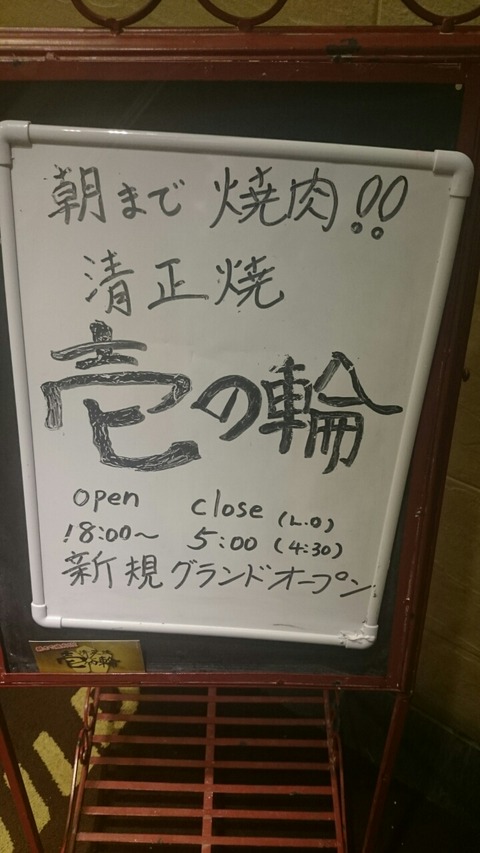 朝まで 焼肉!!
清正焼
壱の輪
open close (L.O)
18:00〜 5:00 (4:30)
新規グランドオープン.
壱の輪